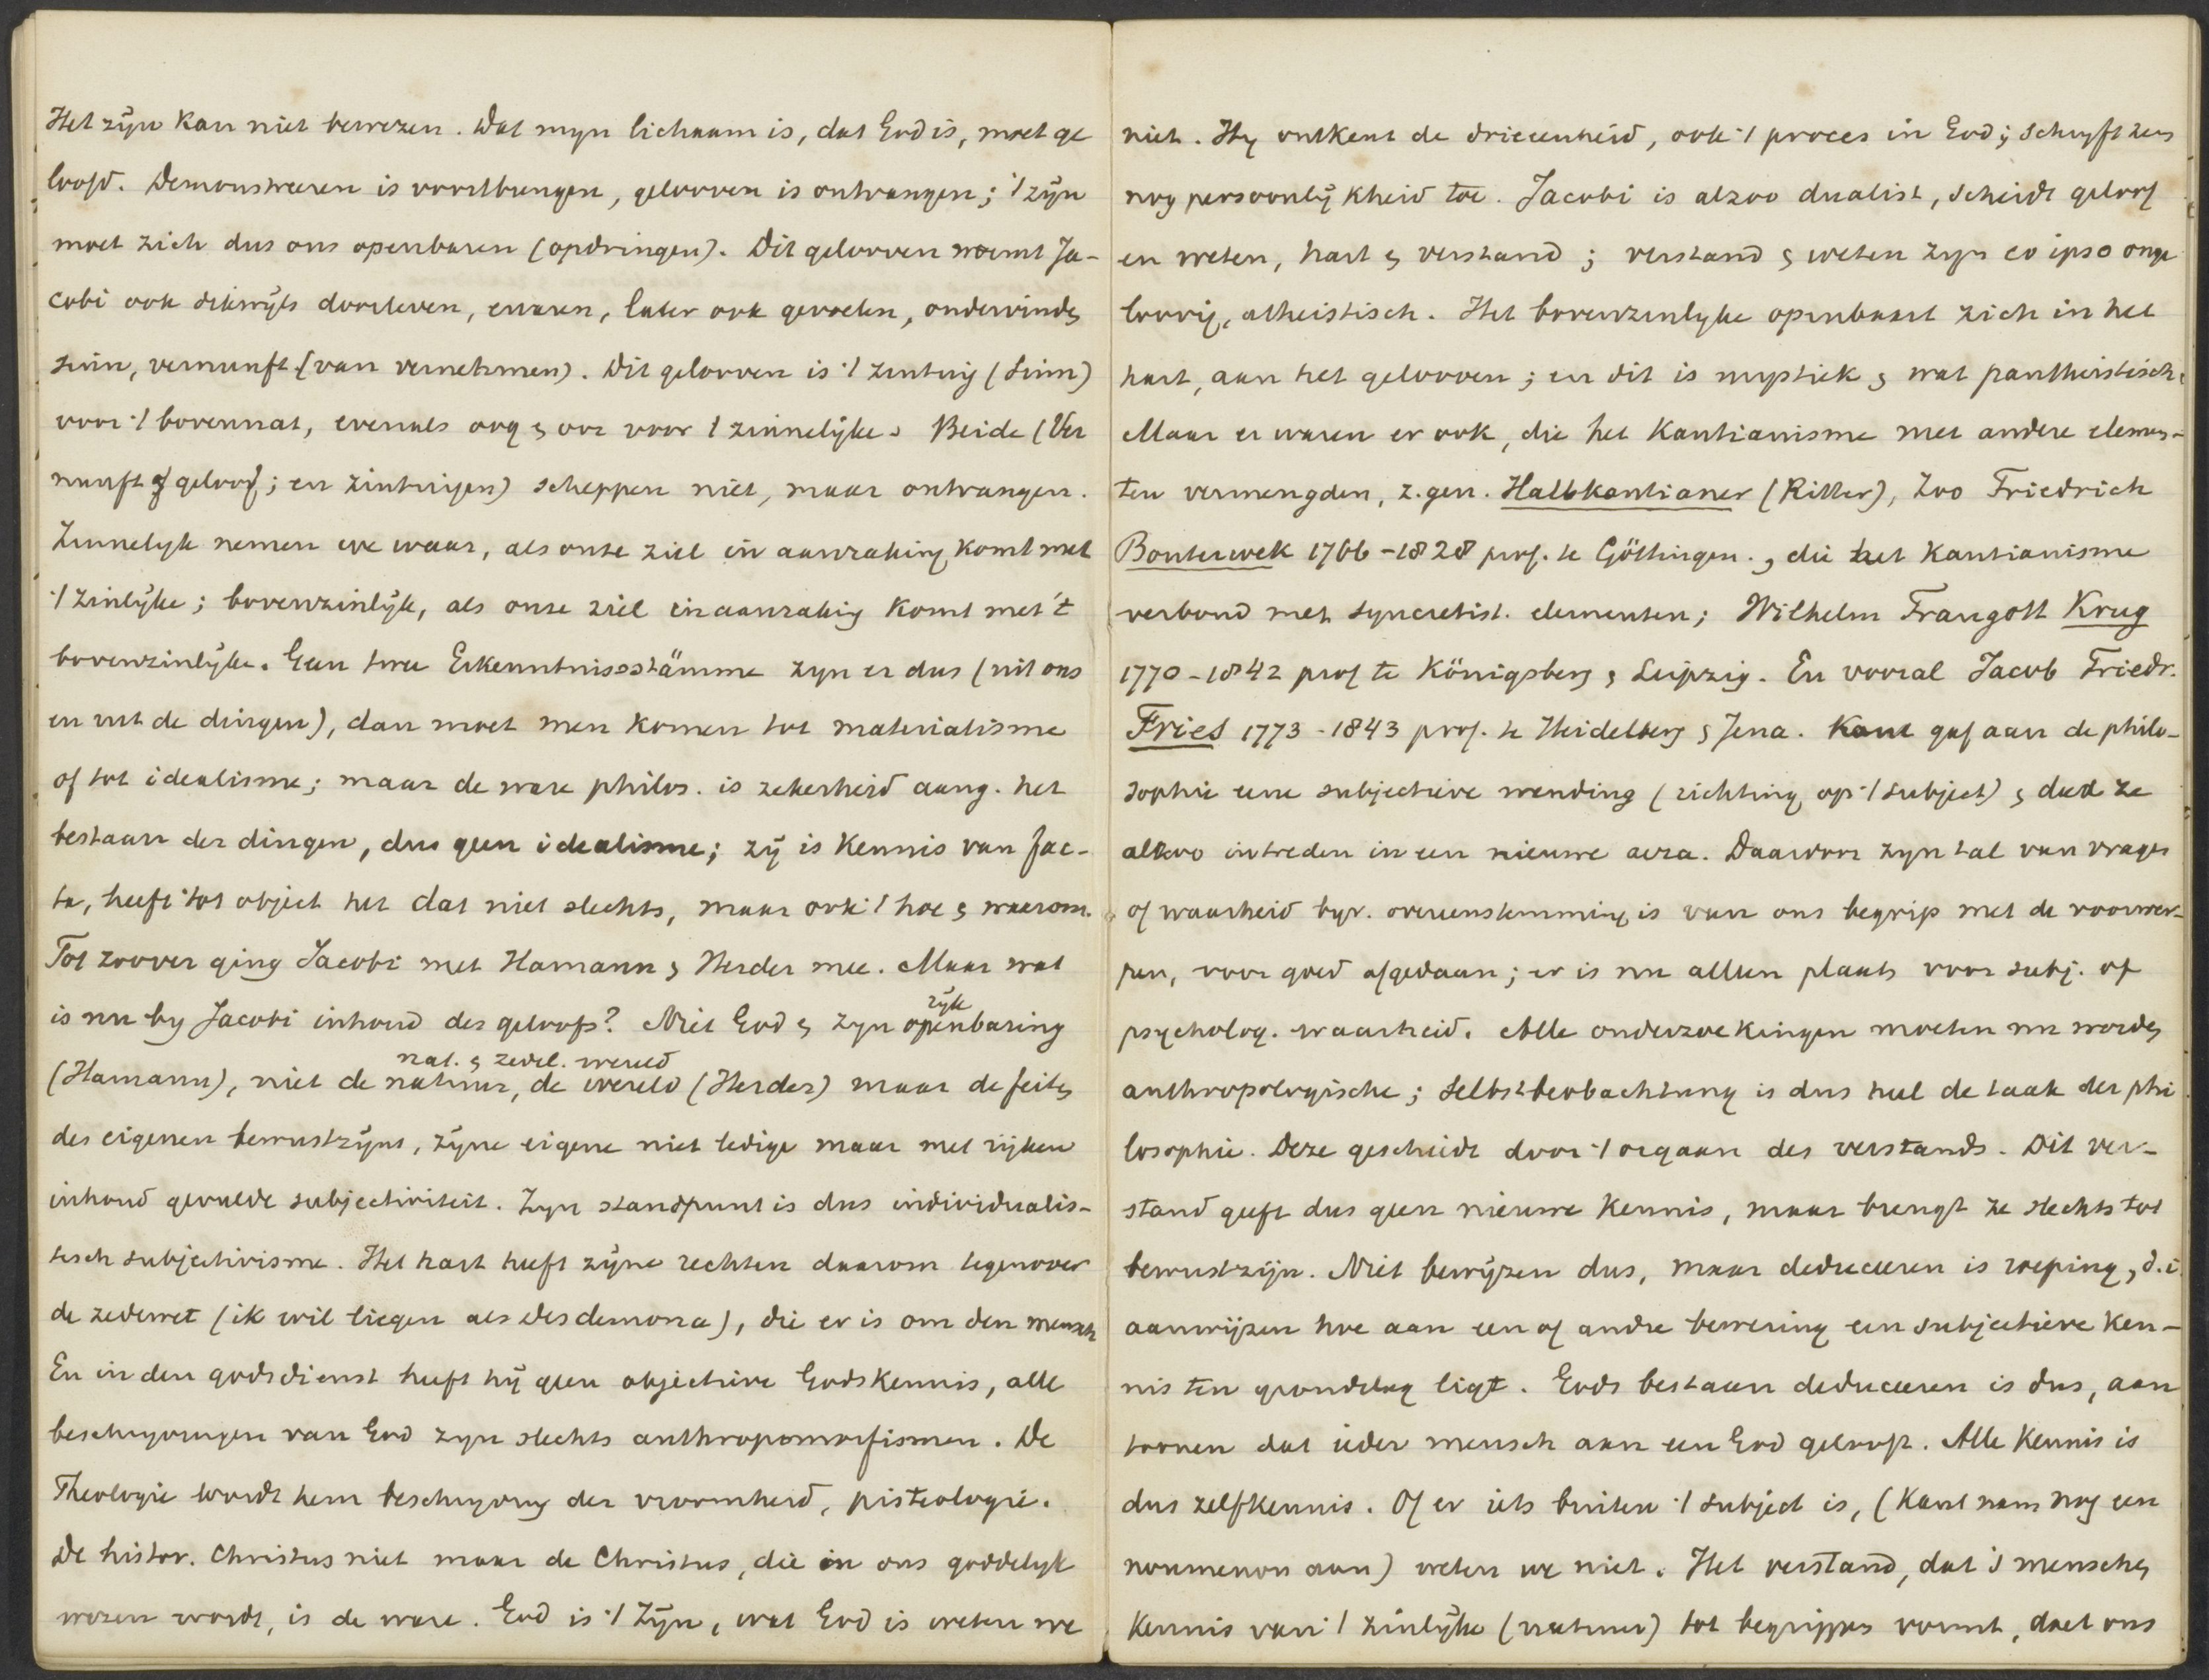 Het zijn kan niet bewezen. Dat myn lichaam is, dat God is, moet ge
loofd. Demonstreeren is voortbrengen, gelooven is ontvangen; 't zijn
moet zich dus ons openbaren (opdringen). Dit gelooven noemt Ja-
cobi ook dikwijls doorleven, ervaren, later ook gevoelen, ondervinden
sinn, vernunft (van vernehmen). Dit gelooven is 't zintuig (Sinn)
voor 't bovennat, evenals oog & oor voor 't zinnelijke. Beide (Ver
nunft & geloof; en zintuigen) scheppen niet, maar ontvangen.
Zinnelyk nemen we waar, als onse ziel in aanraking komt met
't zinlijke; bovenzinlijk, als onse ziel in aanraking komt met 't
bovenzinlijke. Geen twee Erkenntnissstämme zyn er dus (uit ons
en uit de dingen), dan moet men komen tot materialisme
of tot idealisme; maar de ware philos. is zekerheid aang. het
bestaan der dingen, dus geen idealisme; zij is kennis van fac-
ta, heeft tot object het dat niet slechts, maar ook 't hoe & waarom.
Tot zoover ging Jacobi met Hamann & Herder mee. Maar wat
is nu by Jacobi inhoud des geloofs? Niet God & zyn rijke openbaring
(Hamann), niet de natuur, de wereld nat. & zedel. wereld (Herder) maar de feiten
des eigenen bewustzijns, zijne eigene niet ledige maar met rijken
inhoud gevulde subjectiviteit. Zyn standpunt is dus individualis-
tisch subjectivisme. Het hart heeft zijne rechten daarom tegenover
de zedewet (ik wil liegen als Desdemona), die er is om den mensch
En in den godsdienst heeft hij geen objectieve Godskennis, alle
beschryvingen van God zyn slechts anthropomorfismen. De
Theologie wordt hem beschryving der vroomheid, pisteologie.
De histor. Christus niet maar de Christus, die in ons goddelyk
wezen wordt, is de ware. God is 't Zijn, wat God is weten we
niet. Hy ontkent de drieeenheid, ook 't proces in God; schryft hem
nog persoonlijkheid toe. Jacobi is alzoo dualist, scheidt geloof
en weten, hart & verstand; verstand & weten zyn eo ipso onge
loovig, atheistisch. Het bovenzinlyke openbaart zich in het
hart, aan het gelooven; en dit is mystiek & wat pantheistisch.
Maar er waren er ook, die het Kantianisme met andere elemen-
ten vermengden, z.gen. Halbkantianer (Ritter), Zoo Friedrich
Bouterwek 1766-1828 prof. te Göttingen., die het Kantianisme
verbond met syncretist. elementen; Wilhelm Traugott Krug
1770-1842 prof te Königsberg & Leipzig. En vooral Jacob Friedr.
Fries 1773-1843 prof. te Heidelberg & Jena. Kant gaf aan de philo-
sophie eene subjectieve wending (richting op 't subject) & deed ze
alzoo intreden in een nieuwe aera. Daarvoor zyn tal van vragen
of waarheid byv. overeenstemming is van ons begrip met de voorwer-
pen, voor goed afgedaan; er is nu alleen plaats voor subj. of
psycholog. waarheid. Alle onderzoekingen moeten nu worden
anthropologische; Selbstbeobachtung is dus heel de taak der phi
losophie. Deze geschiedt door 't orgaan des verstands. Dit ver-
stand geeft dus geen nieuwe kennis, maar brengt ze slechts tot
bewustzijn. Niet bewijzen dus, maar deduceeren is roeping, d.i.
aanwijzen hoe aan een of andre bewering een subjectieve ken-
nis ten grondslag ligt. Gods bestaan deduceeren is dus, aan
toonen dat ieder mensch aan een God gelooft. Alle kennis is
dus zelfkennis. Of er iets buiten 't subject is, (Kant nam nog een
noumenon aan) weten we niet. Het verstand, dat 's menschen
kennis van 't zinlijke (natuur) tot begrippen vormt, doet ons